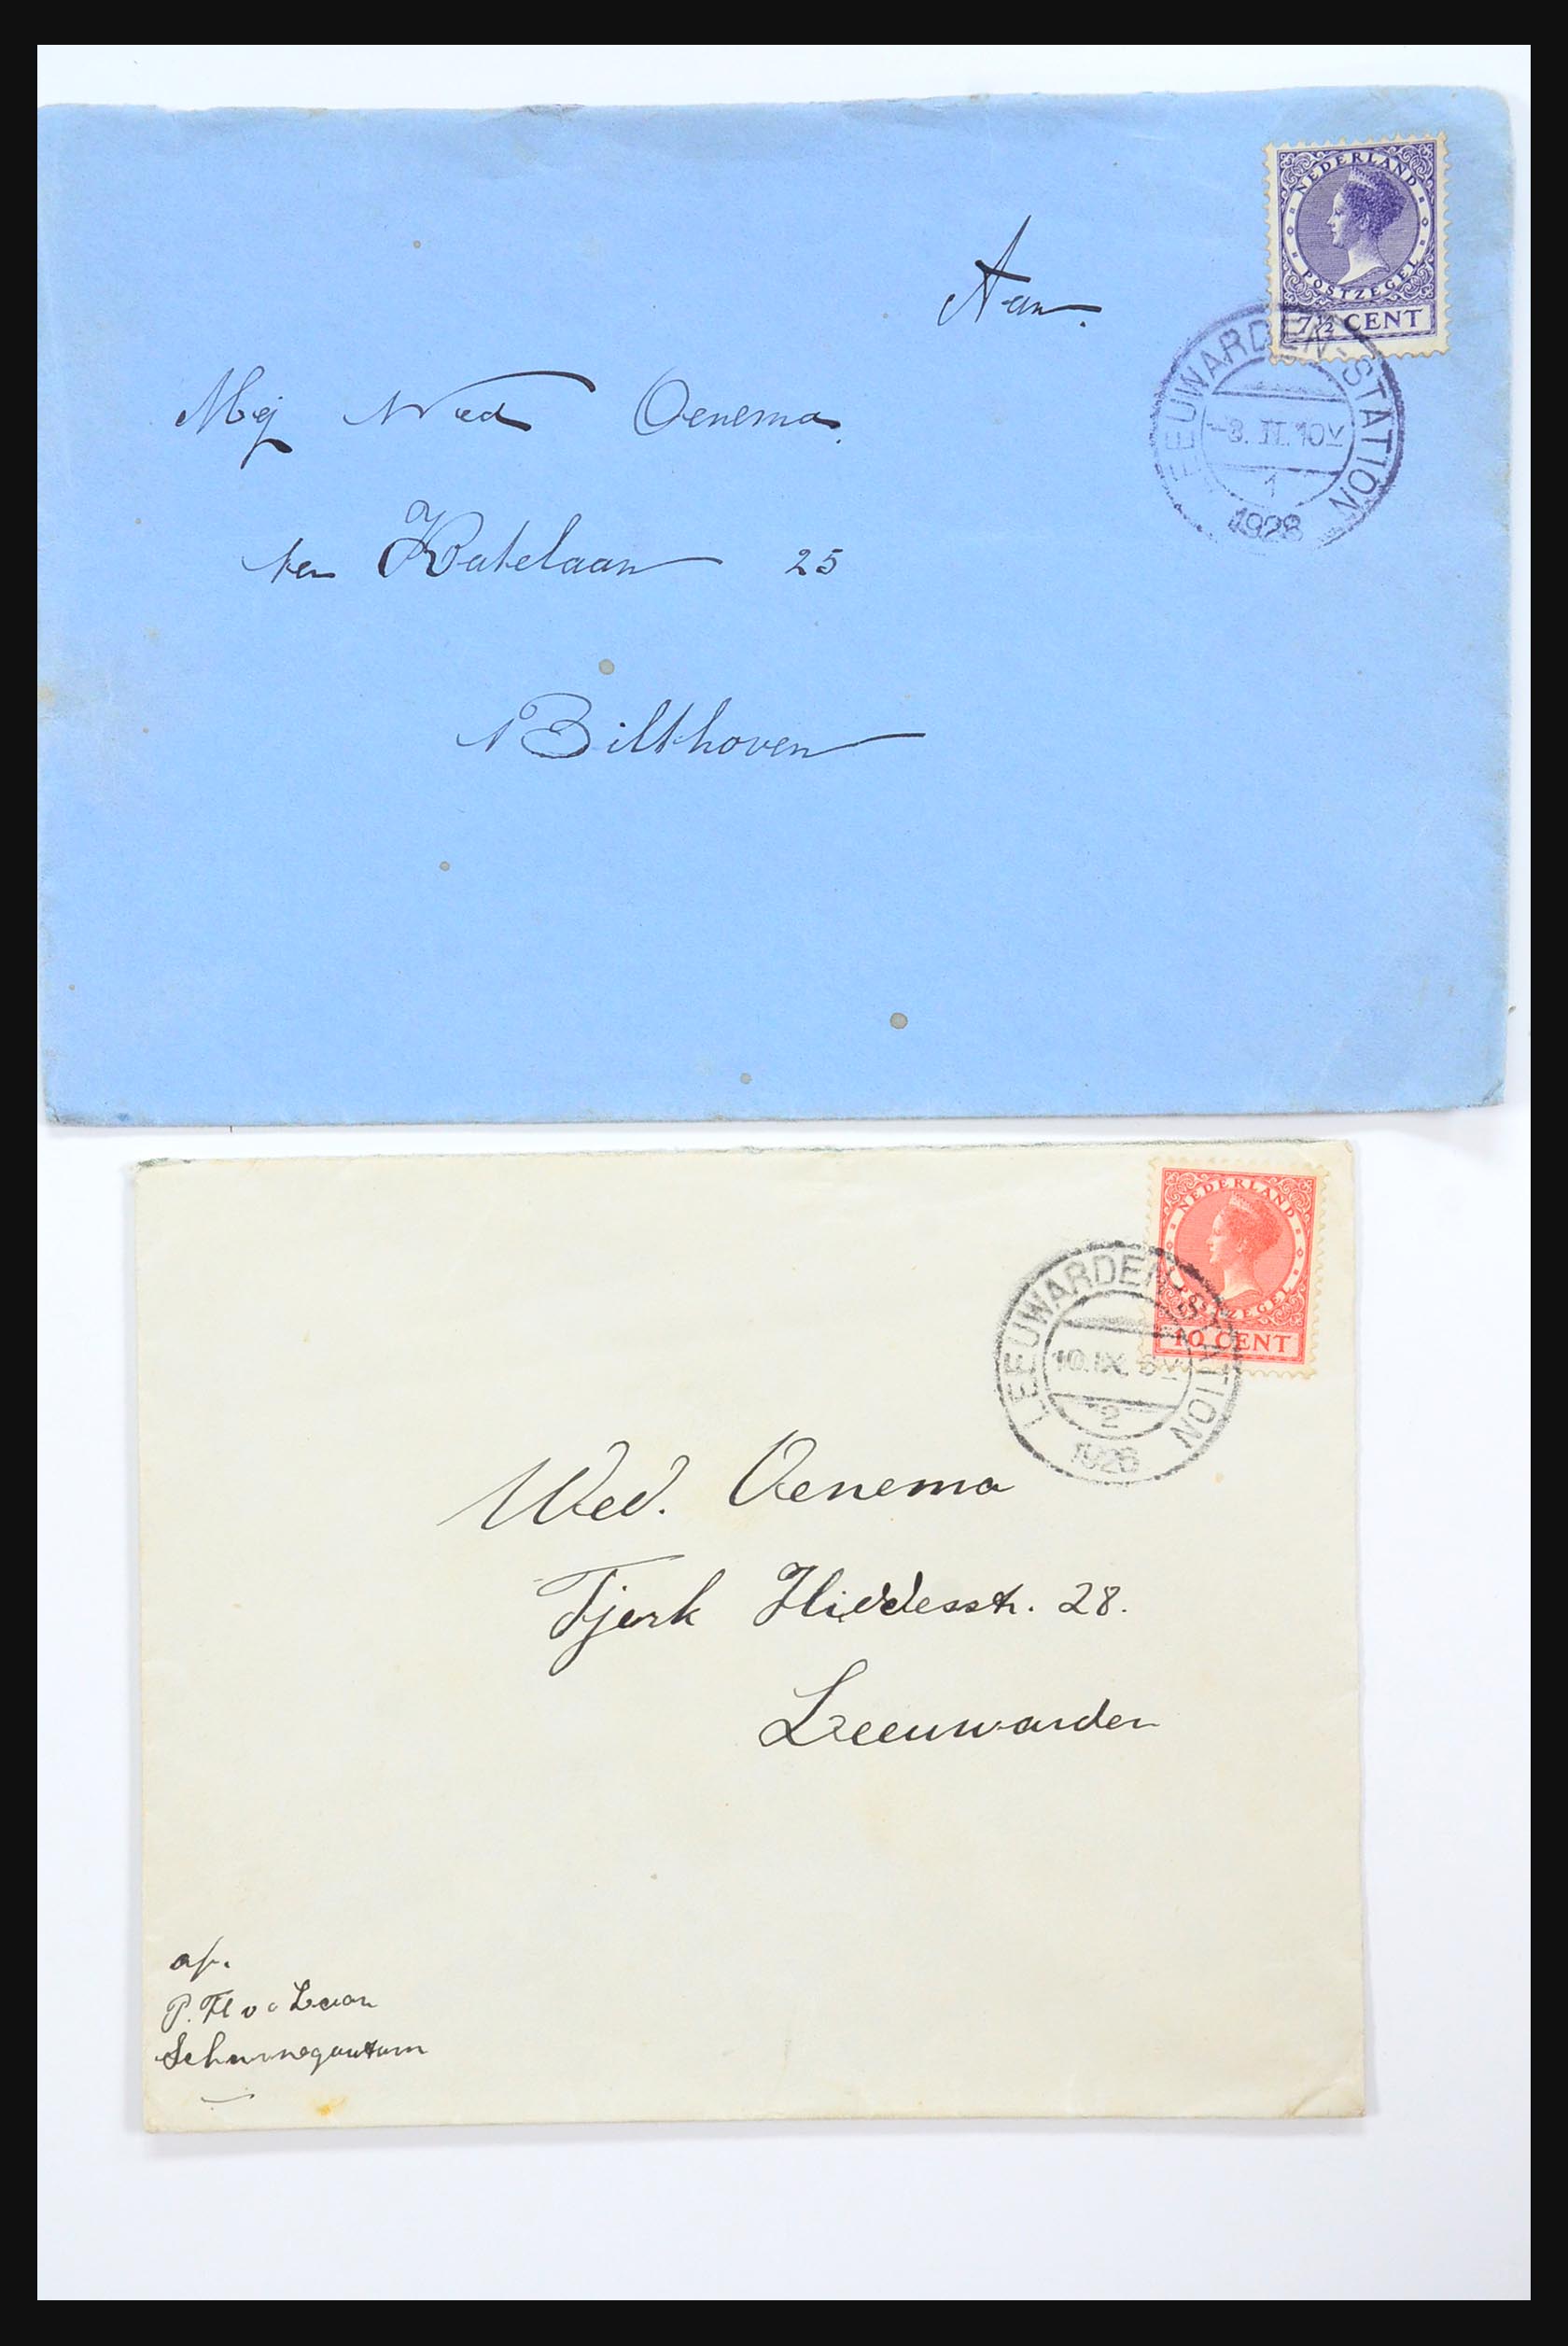 NEDERLAND
POSTZEGEL
7½ CENT
LEEUWARDEN-STATION
-8. II. 10V
1
1928
Aan
Mej Wed Oenema
ten Katelaan 25
Bilthoven
NEDERLAND
POSTZEGEL
10 CENT
LEEUWARDEN-STATION
10. IX. 6V
2
1928
Wed. Oenema
Tjerk Hiddesstr. 28.
Leeuwarden
af.
P. H v d